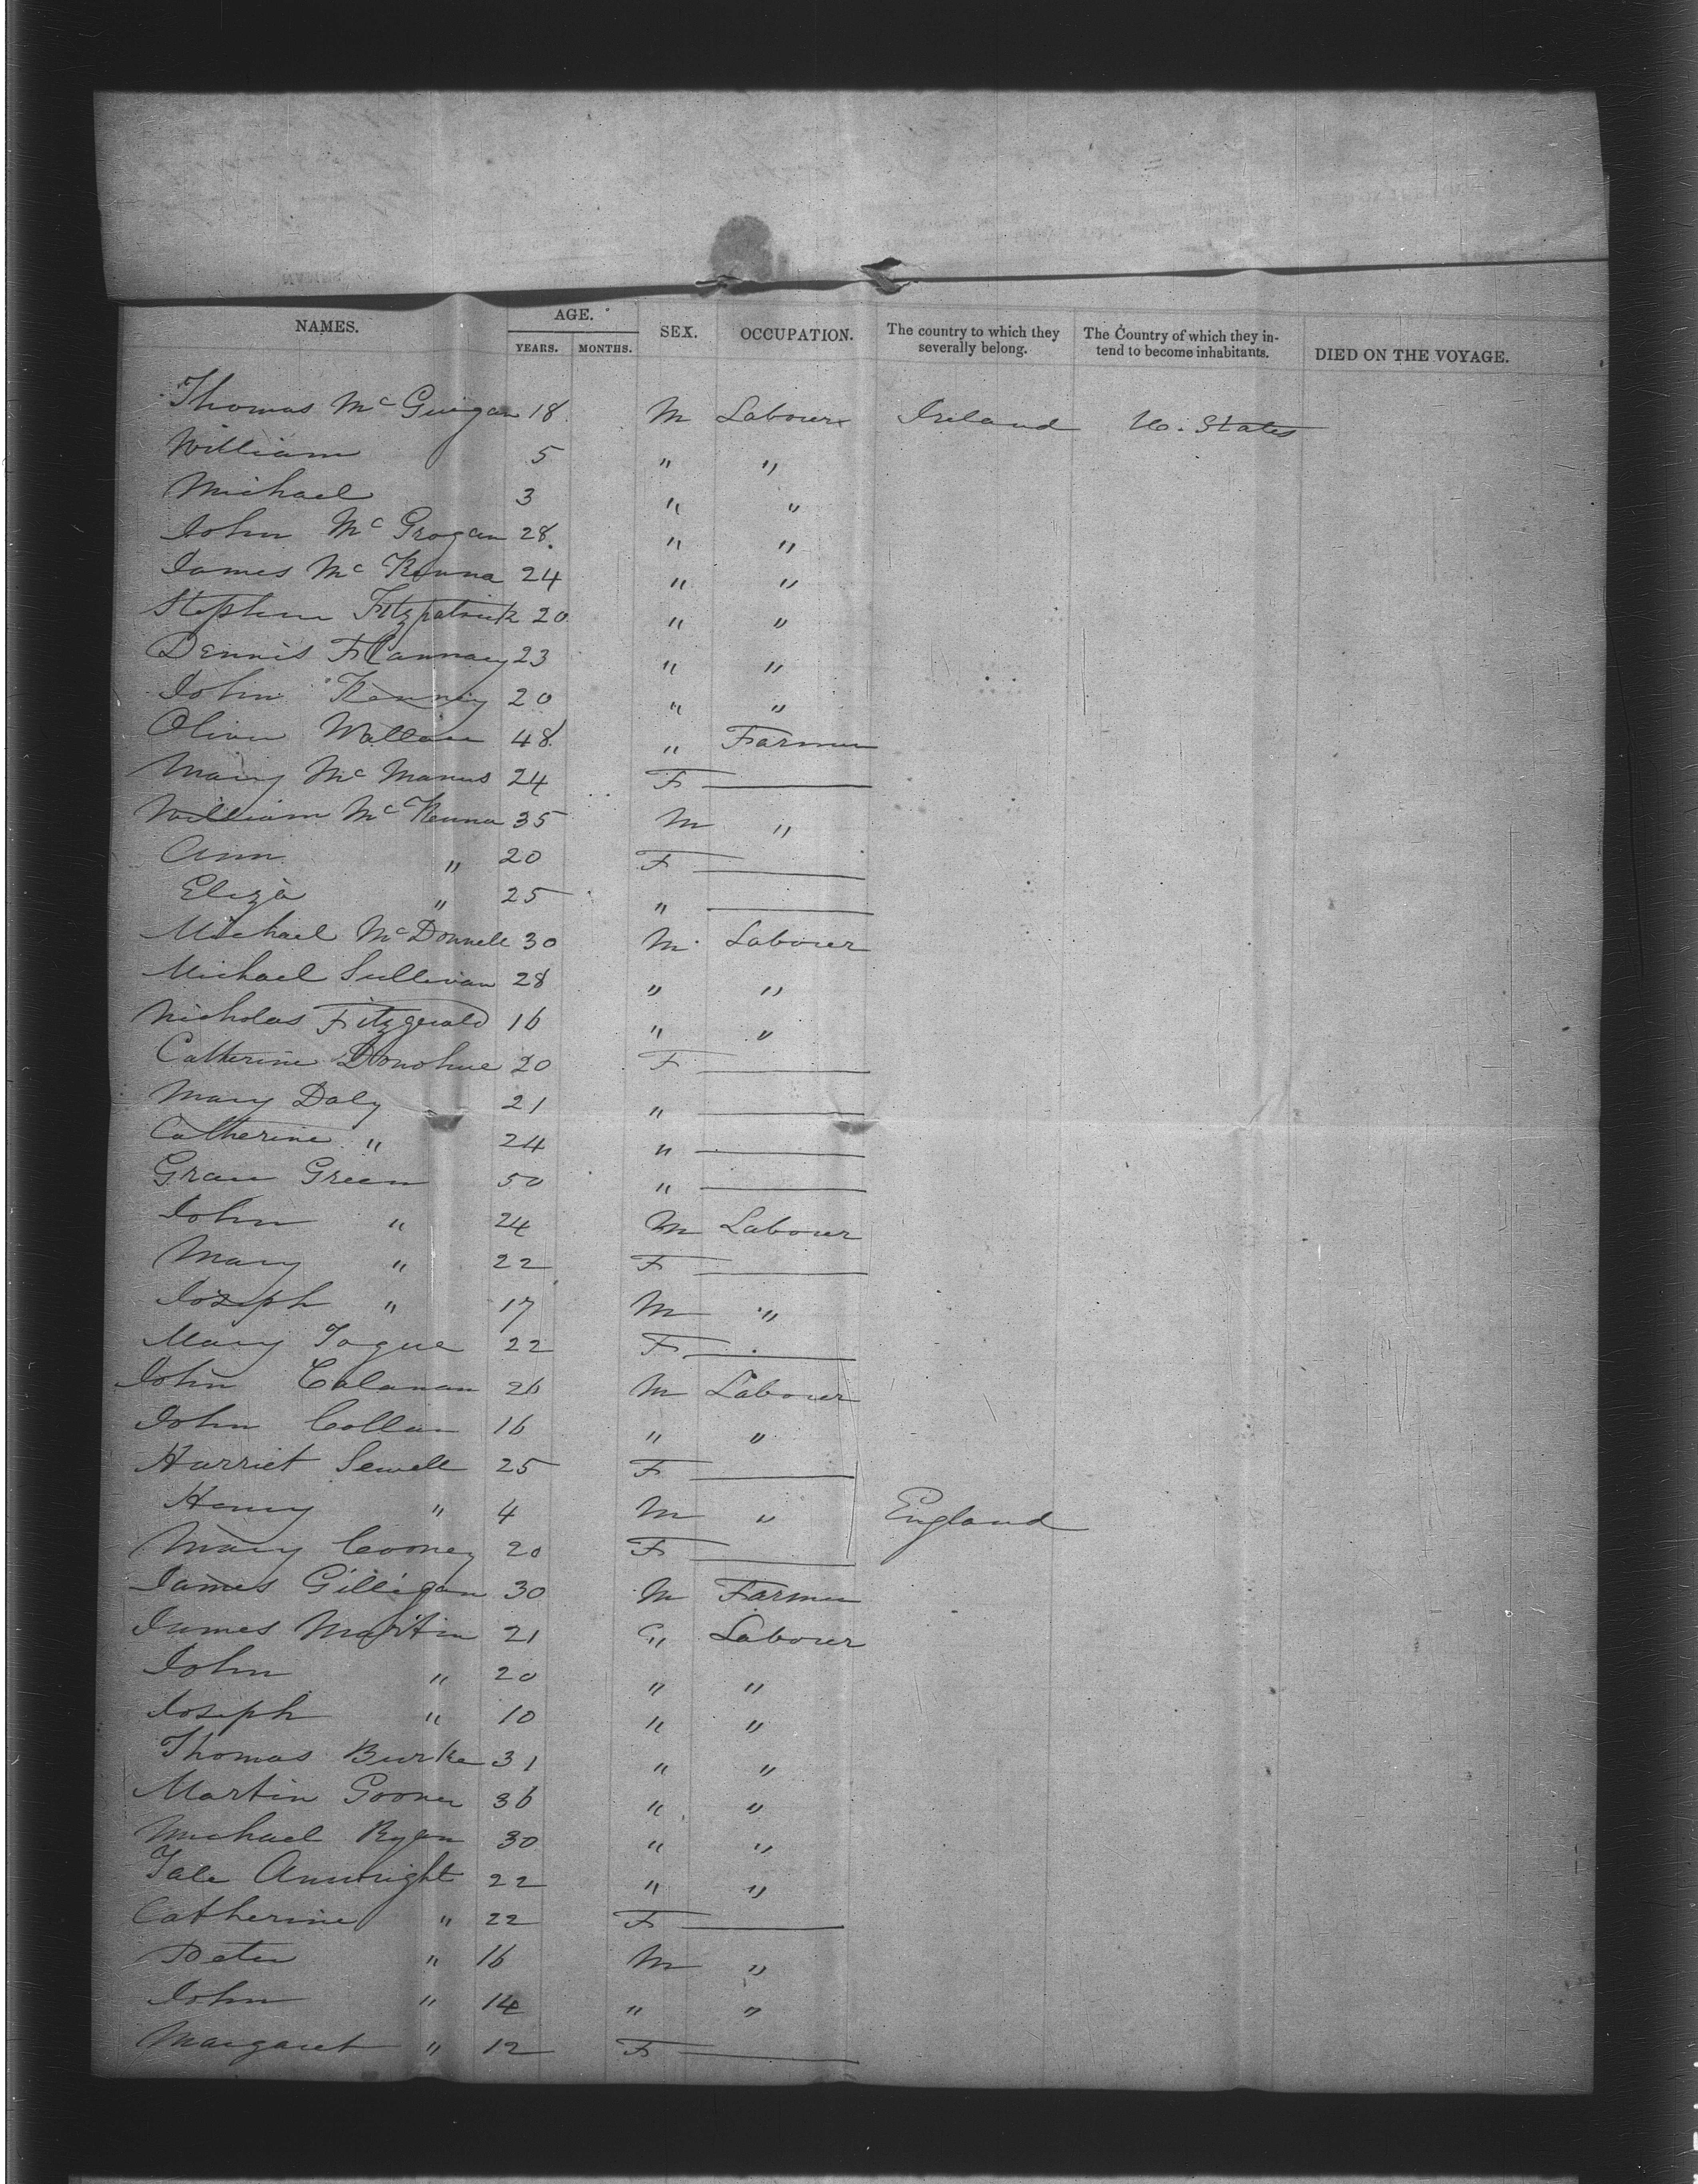 NAMES. AGE. YEARS. MONTHS. SEX. OCCUPATION. The country to which they severally belong. The Country of which they intend to become inhabitants. DIED ON THE VOYAGE.
Thomas McGuigan 18 M Labourer Ireland U. States
William 5 " "
Michael 3 " "
John McGrogan 28 " "
James McKenna 24 " "
Stephen Fitzpatrick 20 " "
Dennis Flannary 23 " "
John Kenney 20 " "
Oliver Wallace 48 " Farmer
Mary McManus 24 F —
William McKenna 35 M "
Ann " 20 F —
Eliza " 25 " —
Michael McDonnell 30 M Labourer
Michael Sullivan 28 " "
Nicholas Fitzgerald 16 " "
Catherine Donohue 20 F —
Mary Daly 21 " —
Catherine " 24 " —
Grace Green 50 " —
John " 24 M Labourer
Mary " 22 F —
Joseph " 17 M "
Mary Togue 22 F —
John Calanan 26 M Labourer
John Collan 16 " "
Harriet Sewell 25 F —
Henry " 4 M " England
Mary Cooney 20 F —
James Gilligan 30 M Farmer
James Martin 21 " Labourer
John " 20 " "
Joseph " 10 " "
Thomas Burke 31 " "
Martin 36 " "
Michael Ryan 30 " "
22 " "
Catherine " 22 F —
Peter " 16 M "
John " 14 " "
Margaret " 12 F —